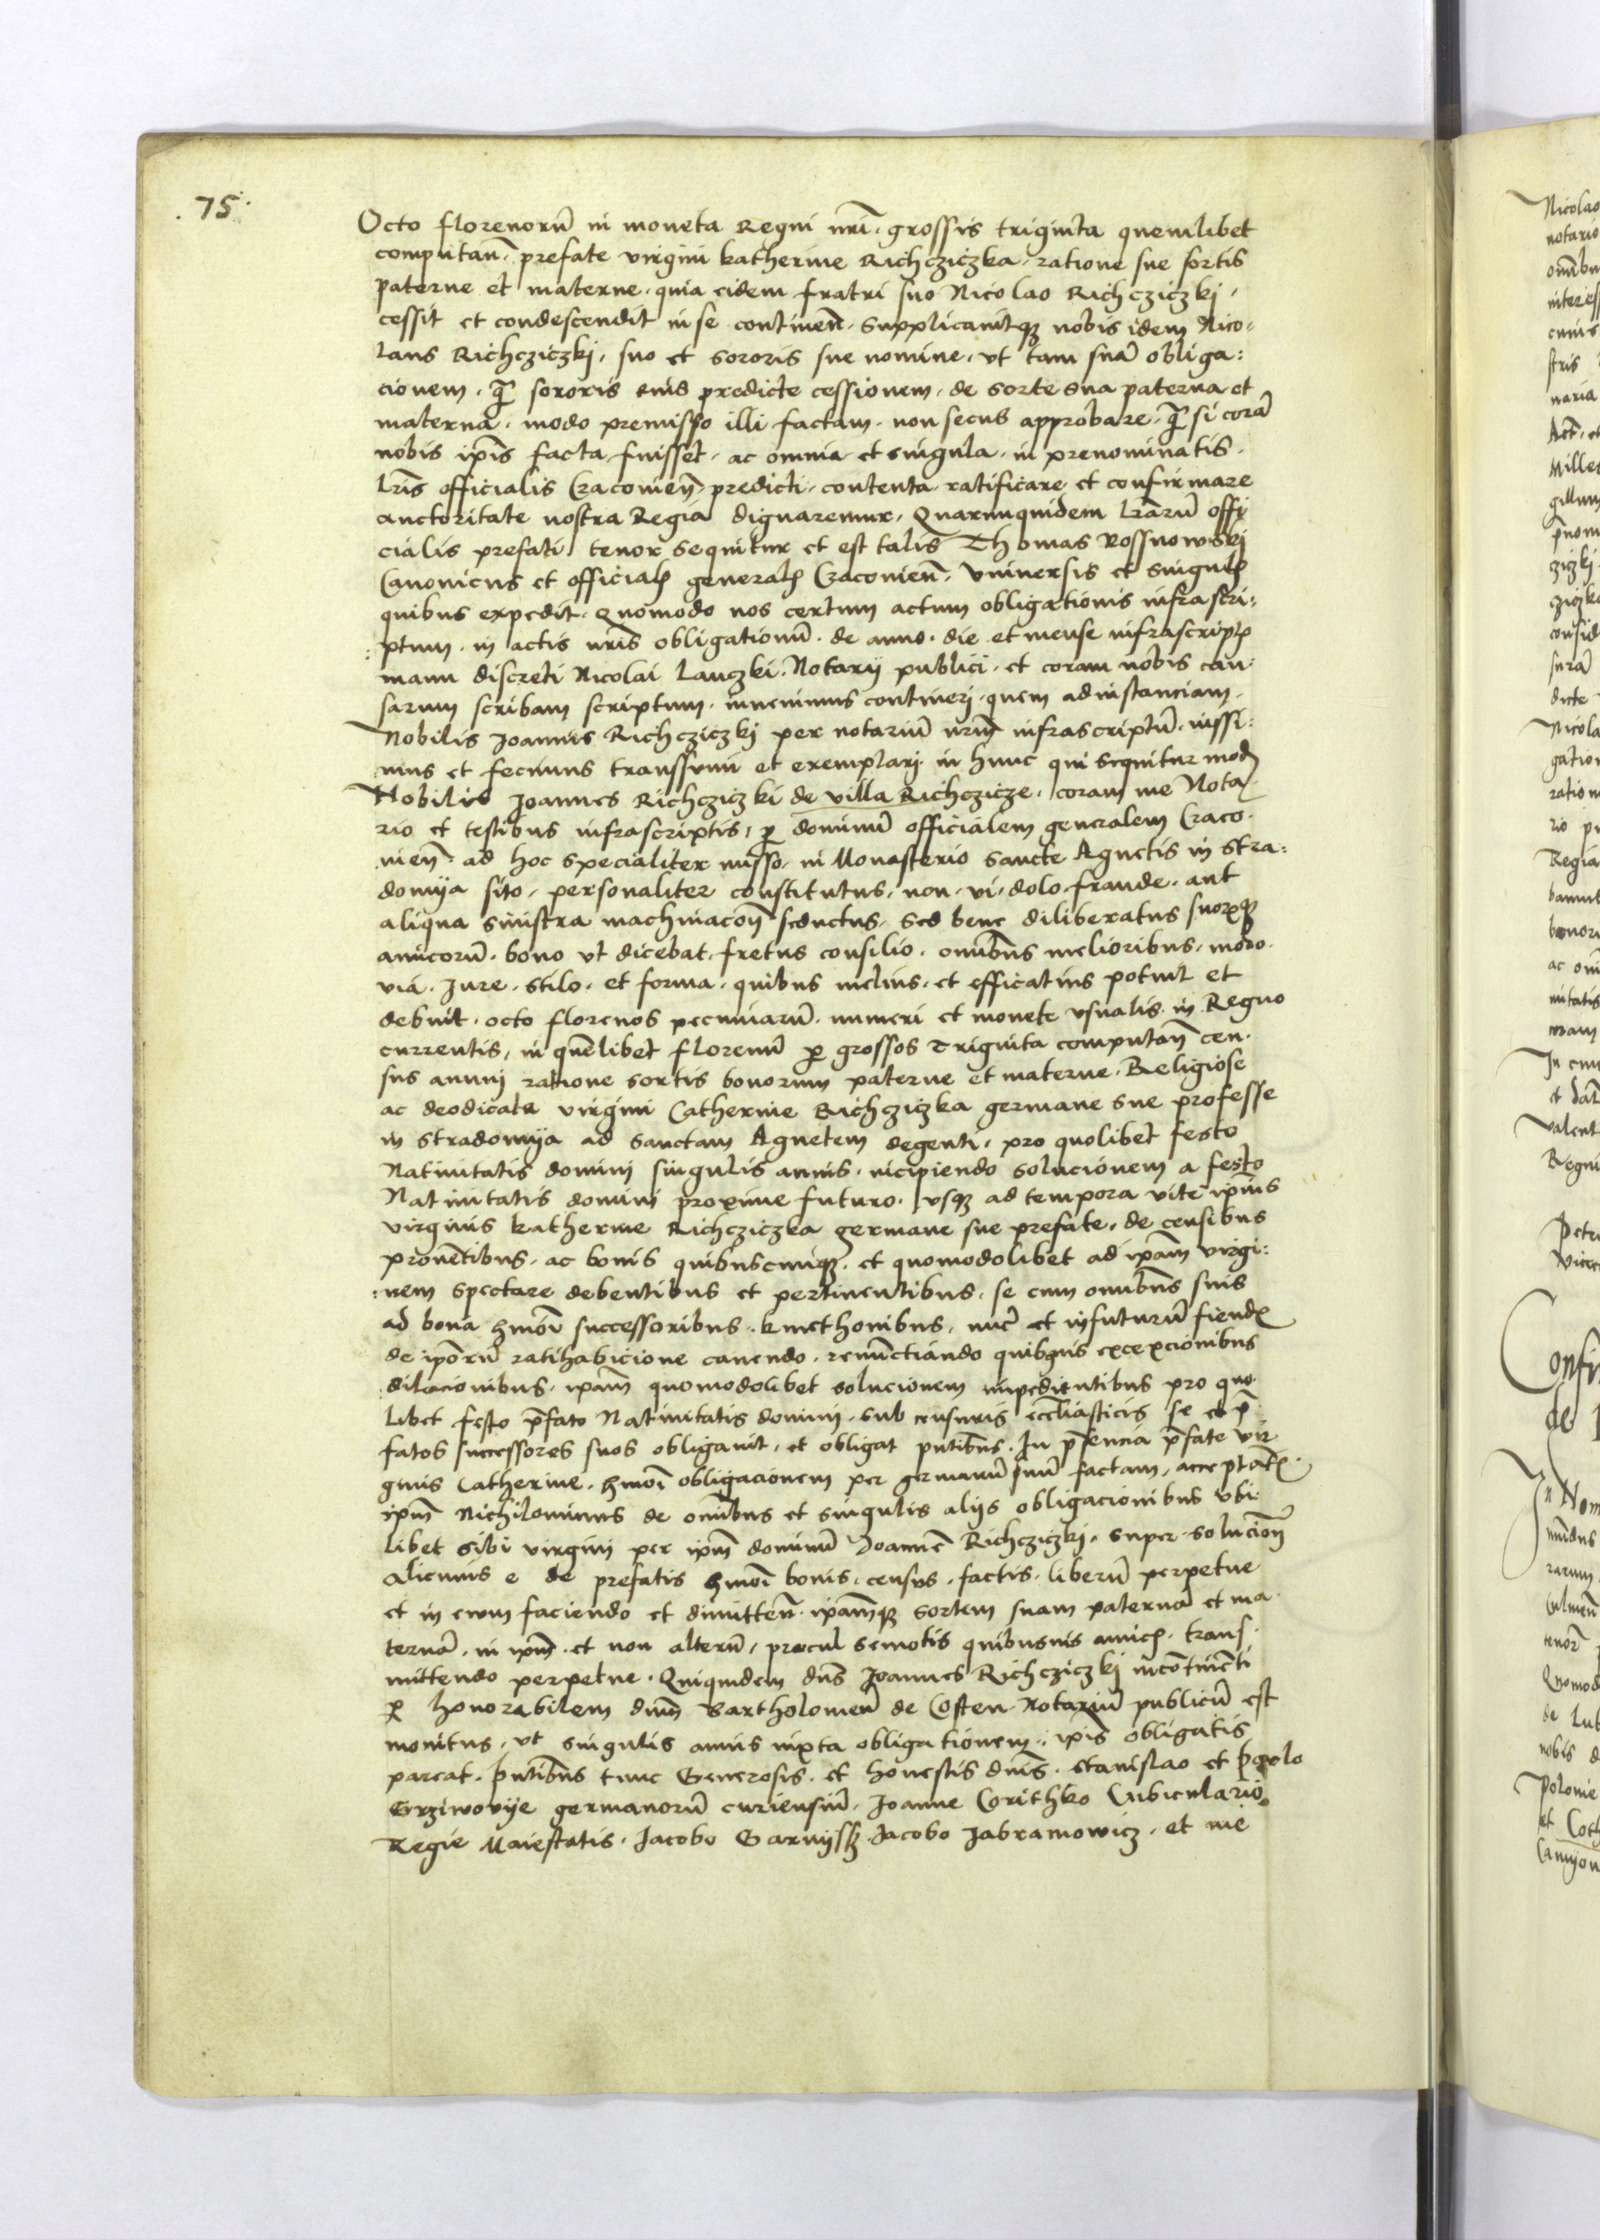 .75.
Octo florenorū in moneta Regni nr̄i, grossis triginta quemlibet
computan̄. prefate virgini katherine Richcziczka, ratione sue sortis
paterne et materne, quia eidem fratri suo Nicolao Richcziczkj,
cessit et condescendit in se continen̄. Supplicauitqꝫ nobis idem Nico-
laus Richcziczkj, suo et sororis sue nomine, vt tam suā obliga:
cionem, ꝙ̄ sororis eius predicte cessionem, de sorte sua paterna et
materna, modo premisso illi factam, non secus approbare, ꝙ̄ si corā
nobis ip̄is facta fuisset, ac omnia et singula, in prenominatis
lr̄is officialis Cracouien̄. predicti, contenta ratificare et confirmare
auctoritate nostra Regia dignaremur, Quarumquidem lr̄arū offi
cialis prefati tenor sequitur et est talis Thomas Rossnowskj
Canonicus et officialꝭ generalꝭ Cracouien̄. Vniuersis et singulꝭ
quibus expedit. Quomodo nos certum actum obligationis infrascri:
:ptum, in actis nr̄is obligationū, de anno, die et mense infrascriptꝭ
manu discreti Nicolai Lanczki. Notarij publici, et coram nobis cau-
sarum scribam scriptum, inuenimus contineri, quem ad instanciam
Nobilis Joannis Richcziczkj per notariū nr̄m infrascriptū, iussi:
mus et fecimus transsumi et exemplarj in hunc qui sequitur modū
Nobilis Joannes Richcziczki de villa Richczicze, coram me Nota
rio et testibus infrascriptis, ꝑ dominū officialem generalem Craco-
uien̄. ad hoc specialiter misso, in Monasterio Sancte Agnetis in Stra:
domija sito, personaliter constitutus, non vi, dolo, fraude, aut
aliqua sinistra machinacion̄ seductus, Sed bene diliberatus suorꝫqꝫ
amicorū, bono vt dicebat, fretus consilio, omībus melioribus, modo
via, Jure, stilo, et forma, quibus melius, et efficatius potuit et
debuit, octo florenos pecuniarū, numeri et monete vsualis in Regno
currentis, in quēlibet florenū ꝑ grossos Triginta computan̄ cen-
sus annuj ratione sortis bonorum paterne et materne, Religiose
ac deodicate virgini Catherine Richcziczka germane sue professe
in Stradomija ad Sanctam Agnetem degenti, pro quolibet festo
Natiuitatis domini singulis annis, incipiendo solucionem a festo
Natiuitatis domini proxime futuro, vsqꝫ ad tempora vite ipius
virginis katherine Richcziczka germane sue prefate, de censibus
prouētibus, ac bonis quibuscunqꝫ, et quomodolibet ad ip̄am virgi:
:nem spectare debentibus et pertinentibus, se cum omībus suis
ad bona hmōi successoribus, kmethonibus, nūc et in futurū fiendꝭ
de ip̄orū ratihabicione cauendo, renūctiando quibusuis excepcionibus
dilacionibus, ip̄am quomodolibet solucionem impedientibus pro quo-
libet festo p̄fato Natiuitatis domini, sub censuris eccl̄iasticis se et p̄-
fatos successores suos obligauit, et obligat pn̄tibus. In p̄sencia p̄fate vir
ginis Catherine, hmōi obligacionem per germanū suū factam, acceptatꝭ
ip̄m Nichilominus de omībus et singulis alijs obligacionibus vbi-
libet sibi virgini per ip̄m dominū Joannē Richcziczkj, super solucion̄
alicuius e de prefatis hmōi bonis, census, factis, liberū perpetue
et in ewm faciendo et dimitten̄, ip̄amqꝫ sortem suam paternā et ma-
ternā, in ip̄m, et non alterū, procul semotis quibusuis amicꝭ, trans-
mittendo perpetue. Quiquidem dn̄s Joannes Richcziczkj incōtinēti
ꝑ honorabilem dn̄m Bartholomeū de Costen Notariū publicū est
monitus, vt singulis annis iuxta obligationem, ip̄is obligatis
pareat. pn̄tibus tunc Generosis, et honestis dn̄is, Stanislao et
Grziwouije germanorū curiensiū, Joanne Corithko Cubiculario
Regie Maiestatis, Jacobo Garnijssz, Jacobo Jabramowicz, et me